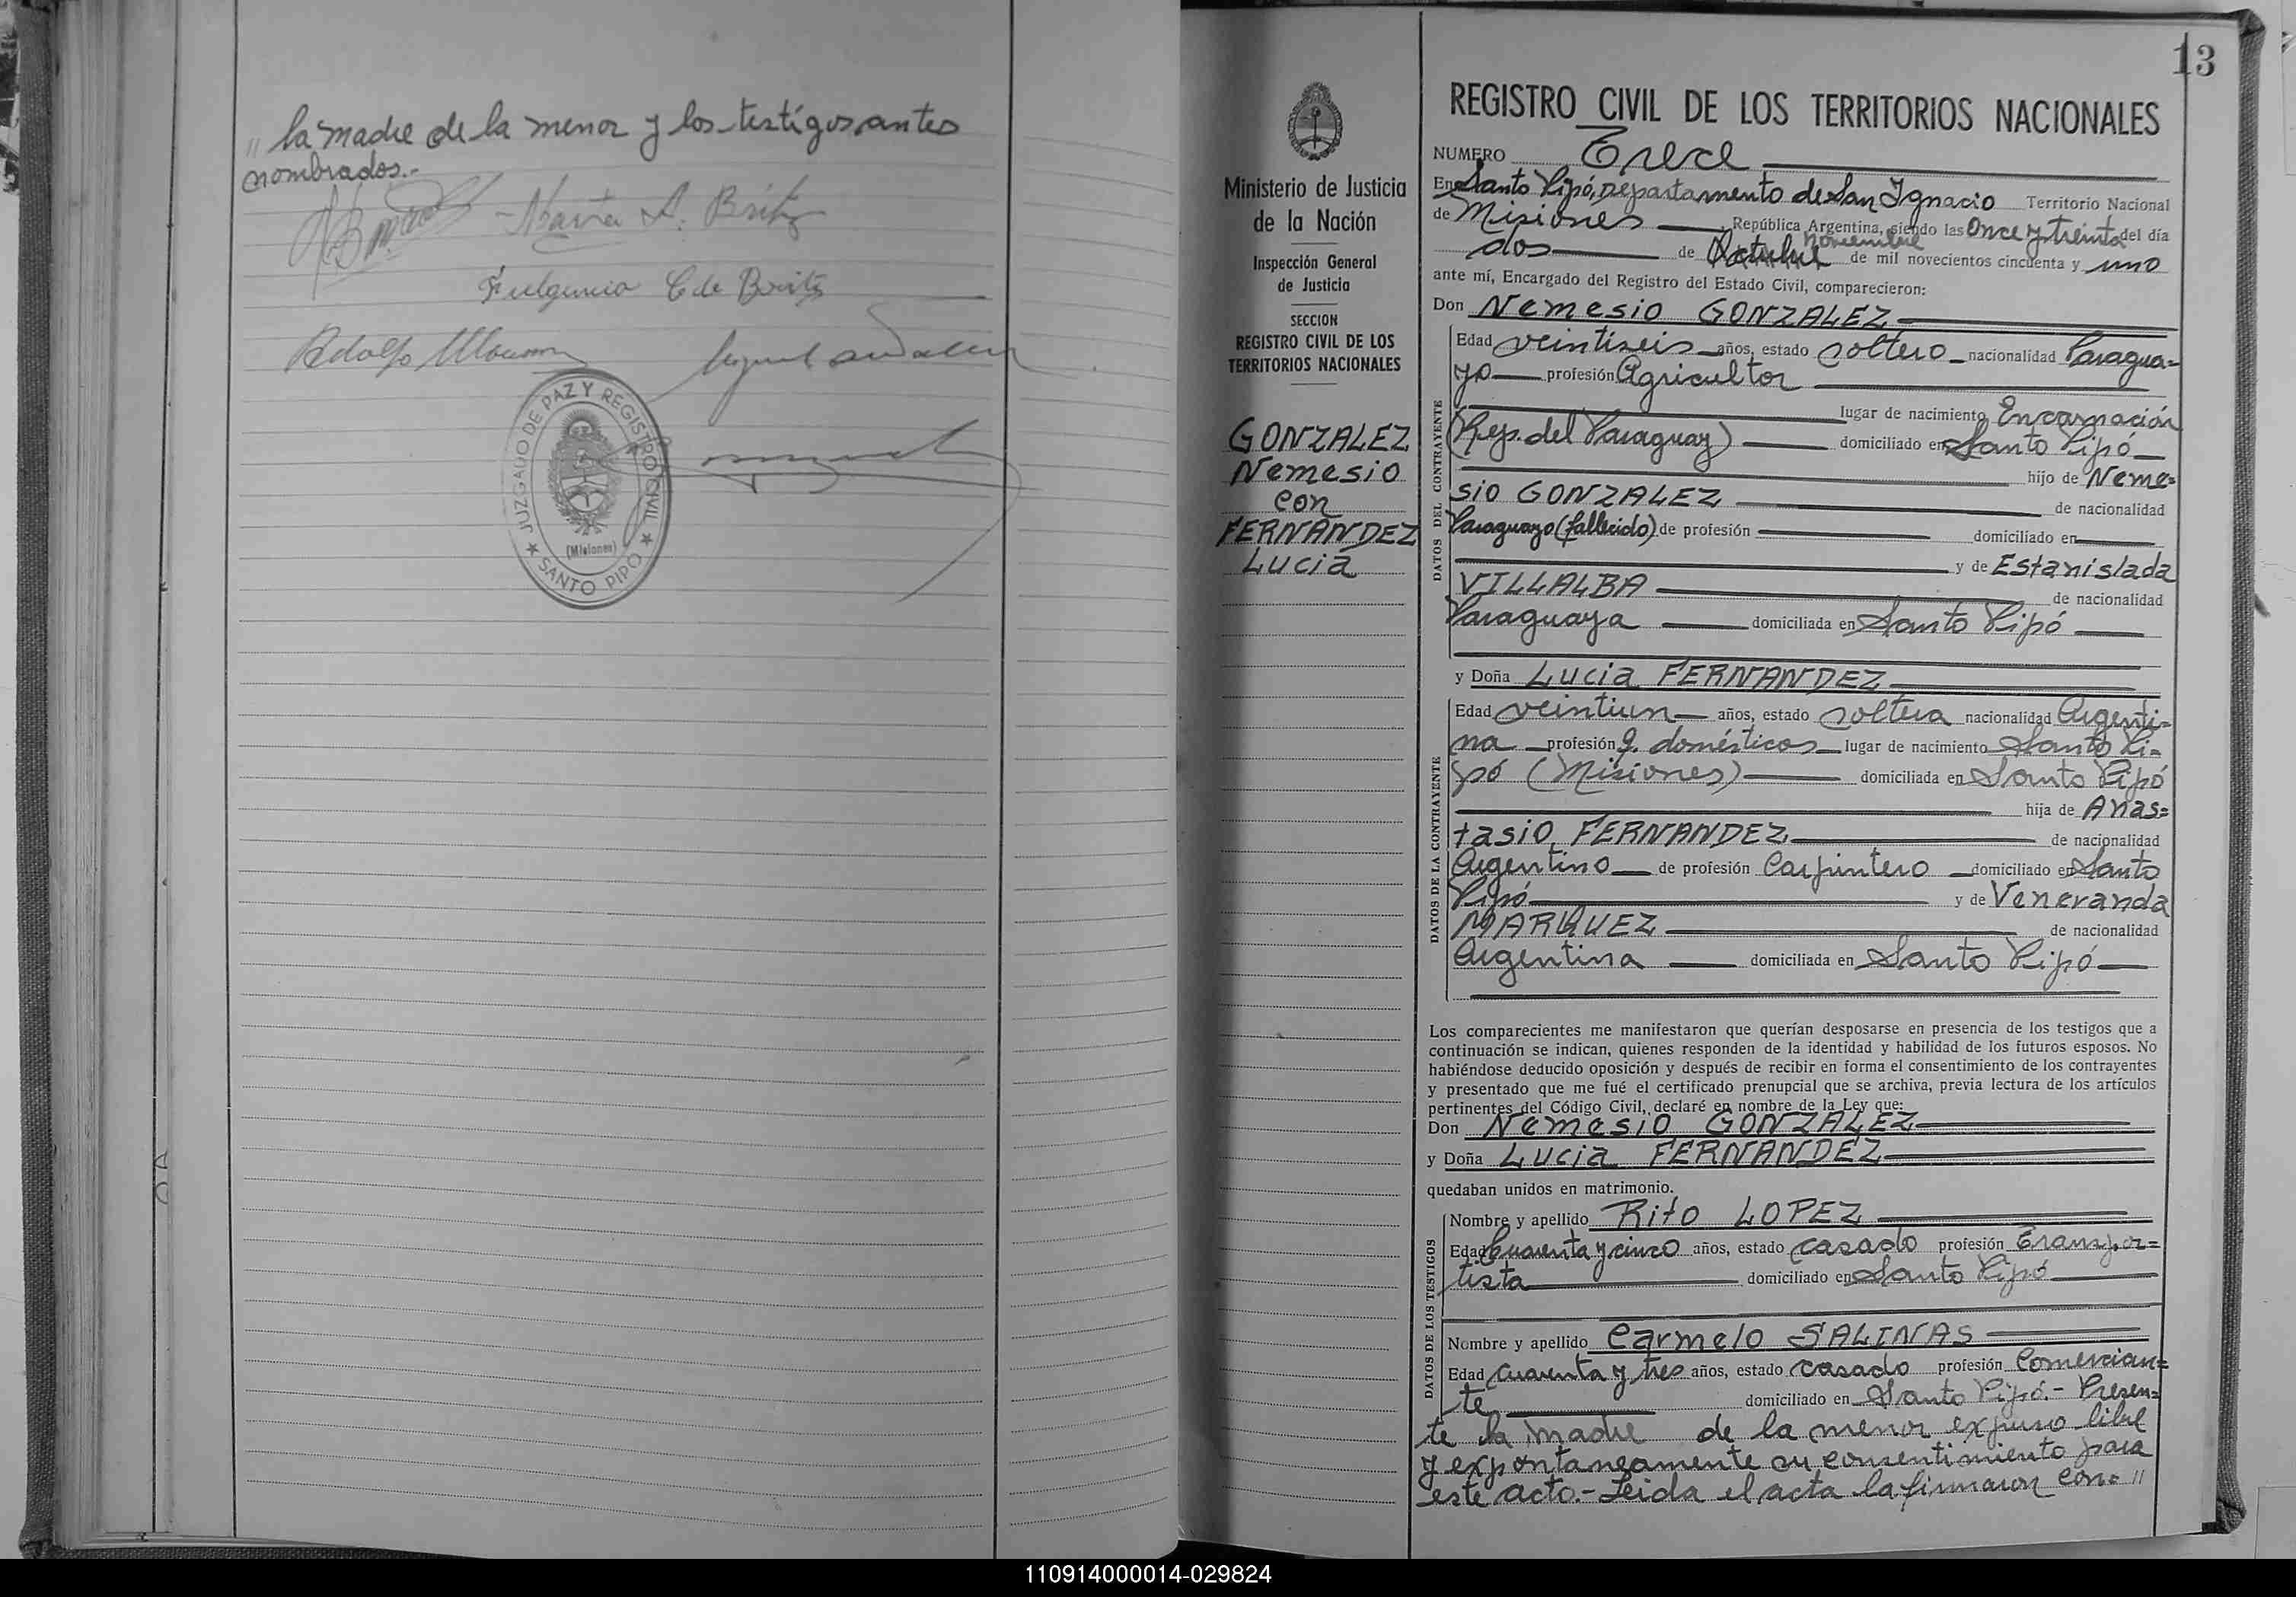 " la madre de la menor y los testigos antes
nombrados.-
Fulgencio C de Britz
JUZGADO DE PAZ Y REGISTRO CIVIL
(Misiones)
★ SANTO PIPO ★
13
Ministerio de Justicia
de la Nación
Inspección General
de Justicia
SECCION
REGISTRO CIVIL DE LOS
TERRITORIOS NACIONALES
GONZALEZ
Nemesio
con
FERNANDEZ
Lucia
REGISTRO CIVIL DE LOS TERRITORIOS NACIONALES
NUMERO Trece
En Santo Pipó, Departamento de San Ignacio Territorio Nacional
de Misiones República Argentina, siendo las Once y treinta del día
noviembre
dos de Octubre de mil novecientos cincuenta y uno
ante mí, Encargado del Registro del Estado Civil, comparecieron:
Don Nemesio GONZALEZ
DATOS DEL CONTRAYENTE
Edad veintiseis años, estado soltero nacionalidad Paragua=
yo profesión Agricultor
lugar de nacimiento Encarnación
(Rep. del Paraguay) domiciliado en Santo Pipó
hijo de Neme=
sio GONZALEZ de nacionalidad
Paraguayo (fallecido) de profesión domiciliado en
y de Estanislada
VILLALBA de nacionalidad
Paraguaya domiciliada en Santo Pipó
y Doña Lucia FERNANDEZ
DATOS DE LA CONTRAYENTE
Edad veintiun años, estado soltera nacionalidad Argenti-
na profesión Q. domésticos lugar de nacimiento Santo Pi-
pó (Misiones) domiciliada en Santo Pipó
hija de Anas=
tasio FERNANDEZ de nacionalidad
Argentino de profesión Carpintero domiciliado en Santo
Pipó y de Veneranda
MARQUEZ de nacionalidad
Argentina domiciliada en Santo Pipó
Los comparecientes me manifestaron que querían desposarse en presencia de los testigos que a
continuación se indican, quienes responden de la identidad y habilidad de los futuros esposos. No
habiéndose deducido oposición y después de recibir en forma el consentimiento de los contrayentes
y presentado que me fué el certificado prenupcial que se archiva, previa lectura de los artículos
pertinentes del Código Civil, declaré en nombre de la Ley que:
Don Nemesio GONZALEZ
y Doña Lucia FERNANDEZ
quedaban unidos en matrimonio.
DATOS DE LOS TESTIGOS
Nombre y apellido Rito LOPEZ
Edad Cuarenta y cinco años, estado casado profesión Transpor=
tista domiciliado en Santo Pipó
Nombre y apellido Carmelo SALINAS
Edad Cuarenta y tres años, estado casado profesión Comercian=
te domiciliado en Santo Pipó.- Presen=
te la madre de la menor expuso libre
y expontaneamente su consentimiento para
este acto.- Leida el acta la firmaron con= "
110914000014-029824